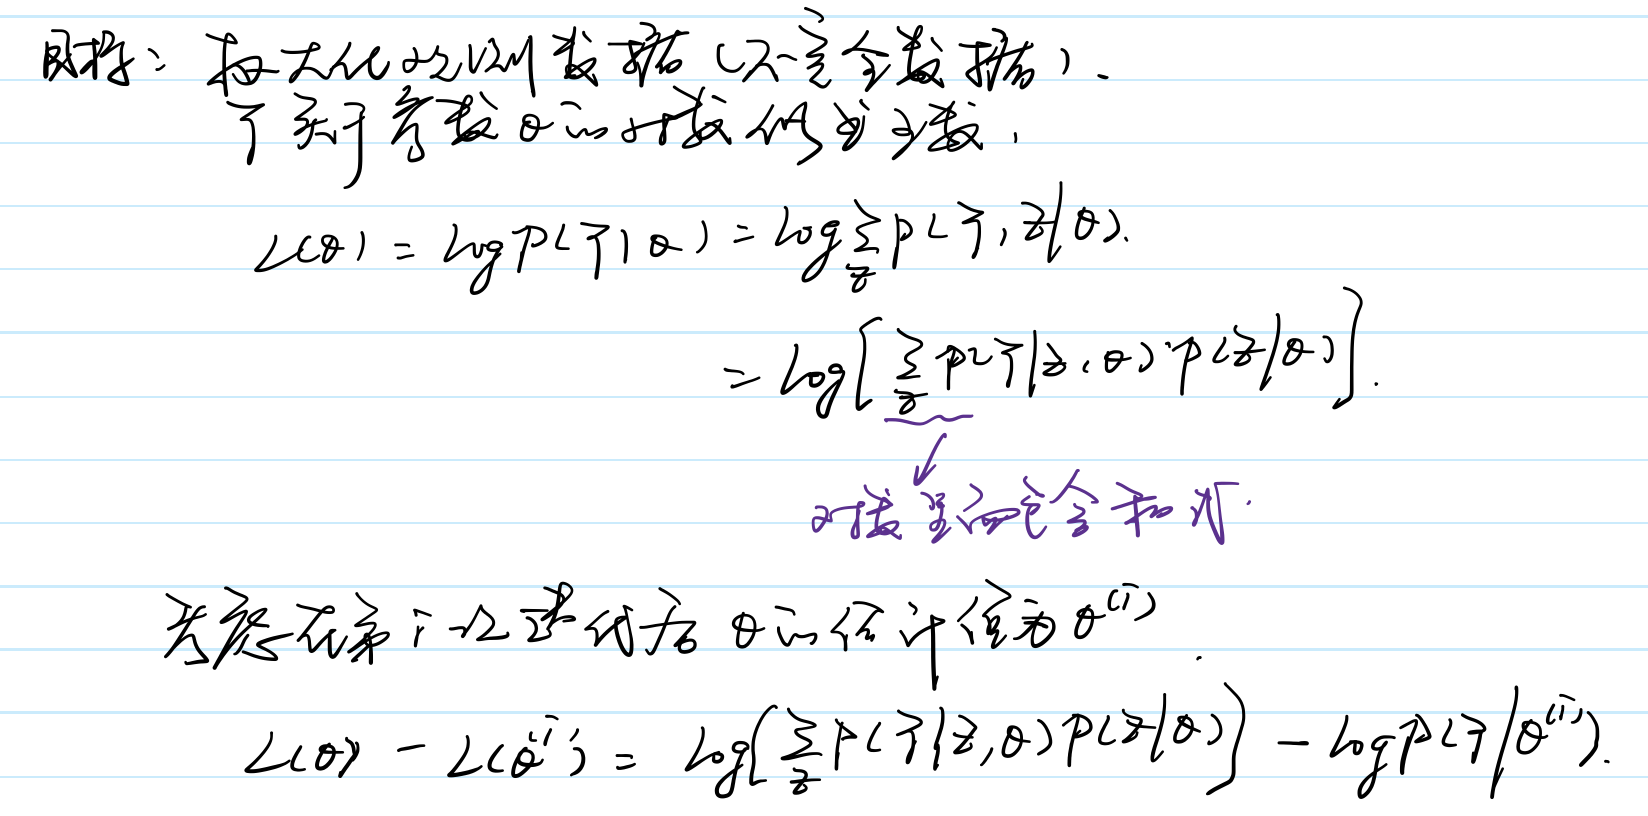 目标：极大化观测数据（不完全数据）.
Y关于参数θ的对数似然函数，
L(θ) = log P(Y|θ) = log ∑_Z P(Y, Z|θ).
= log[∑_Z P(Y|Z, θ)·P(Z|θ)].
对数里面包含和项.
考虑在第i次迭代后θ的估计值为θ^(i).
L(θ) - L(θ^(i)) = log[∑_Z P(Y|Z, θ)P(Z|θ)] - log P(Y|θ^(i)).